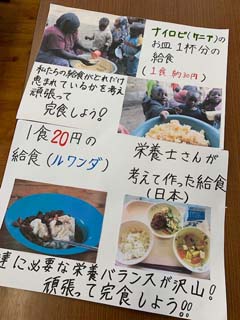 ナイロビ(ケニア)の
お皿1杯分の
給食
(1食 約30円)
私たちの給食がどれだけ
恵まれているかを考え
頑張って
完食しよう!
1食20円の
給食(ルワンダ)
栄養士さんが
考えて作った給食
(日本)
達に必要な栄養バランスが沢山!
頑張って完食しよう!!